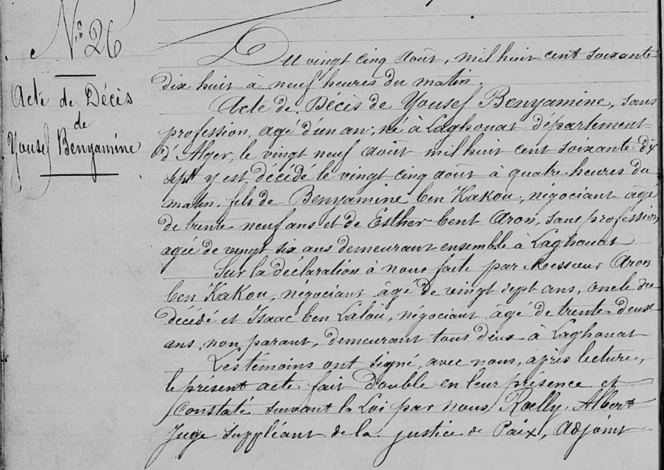 No 26
Acte de Décès
de
Yousef Benyamine
Du vingt cinq août, mil huit cent soixante
dix huit à neuf heures du matin.
Acte de Décès de Yousef Benyamine, sans
profession, agé d'un an, né à Laghouat département
d'Alger, le vingt neuf août mil huit cent soixante dix
sept y est décédé le vingt cinq août à quatre heures du
matin, fils de Benyamine ben Kakou, négociant agé
de trente neuf ans et de Esther bent Aron, sans profession
agée de vingt six ans demeurant ensemble à Laghouat
Sur la déclaration à nous faite par Messieur Aron
ben Kakou, négociant âgé de vingt sept ans, oncle du
décédé et Isaac ben Lalou, négociant âgé de trente-deux
ans, non parant, demeurant tous deux à Laghouat
Les témoins ont signé, avec nous, après lecture,
le présent acte fait double en leur présence et
Constaté suivant la Loi par nous Roelly Albert
Juge suppléant de la justice de Paix, adjoint